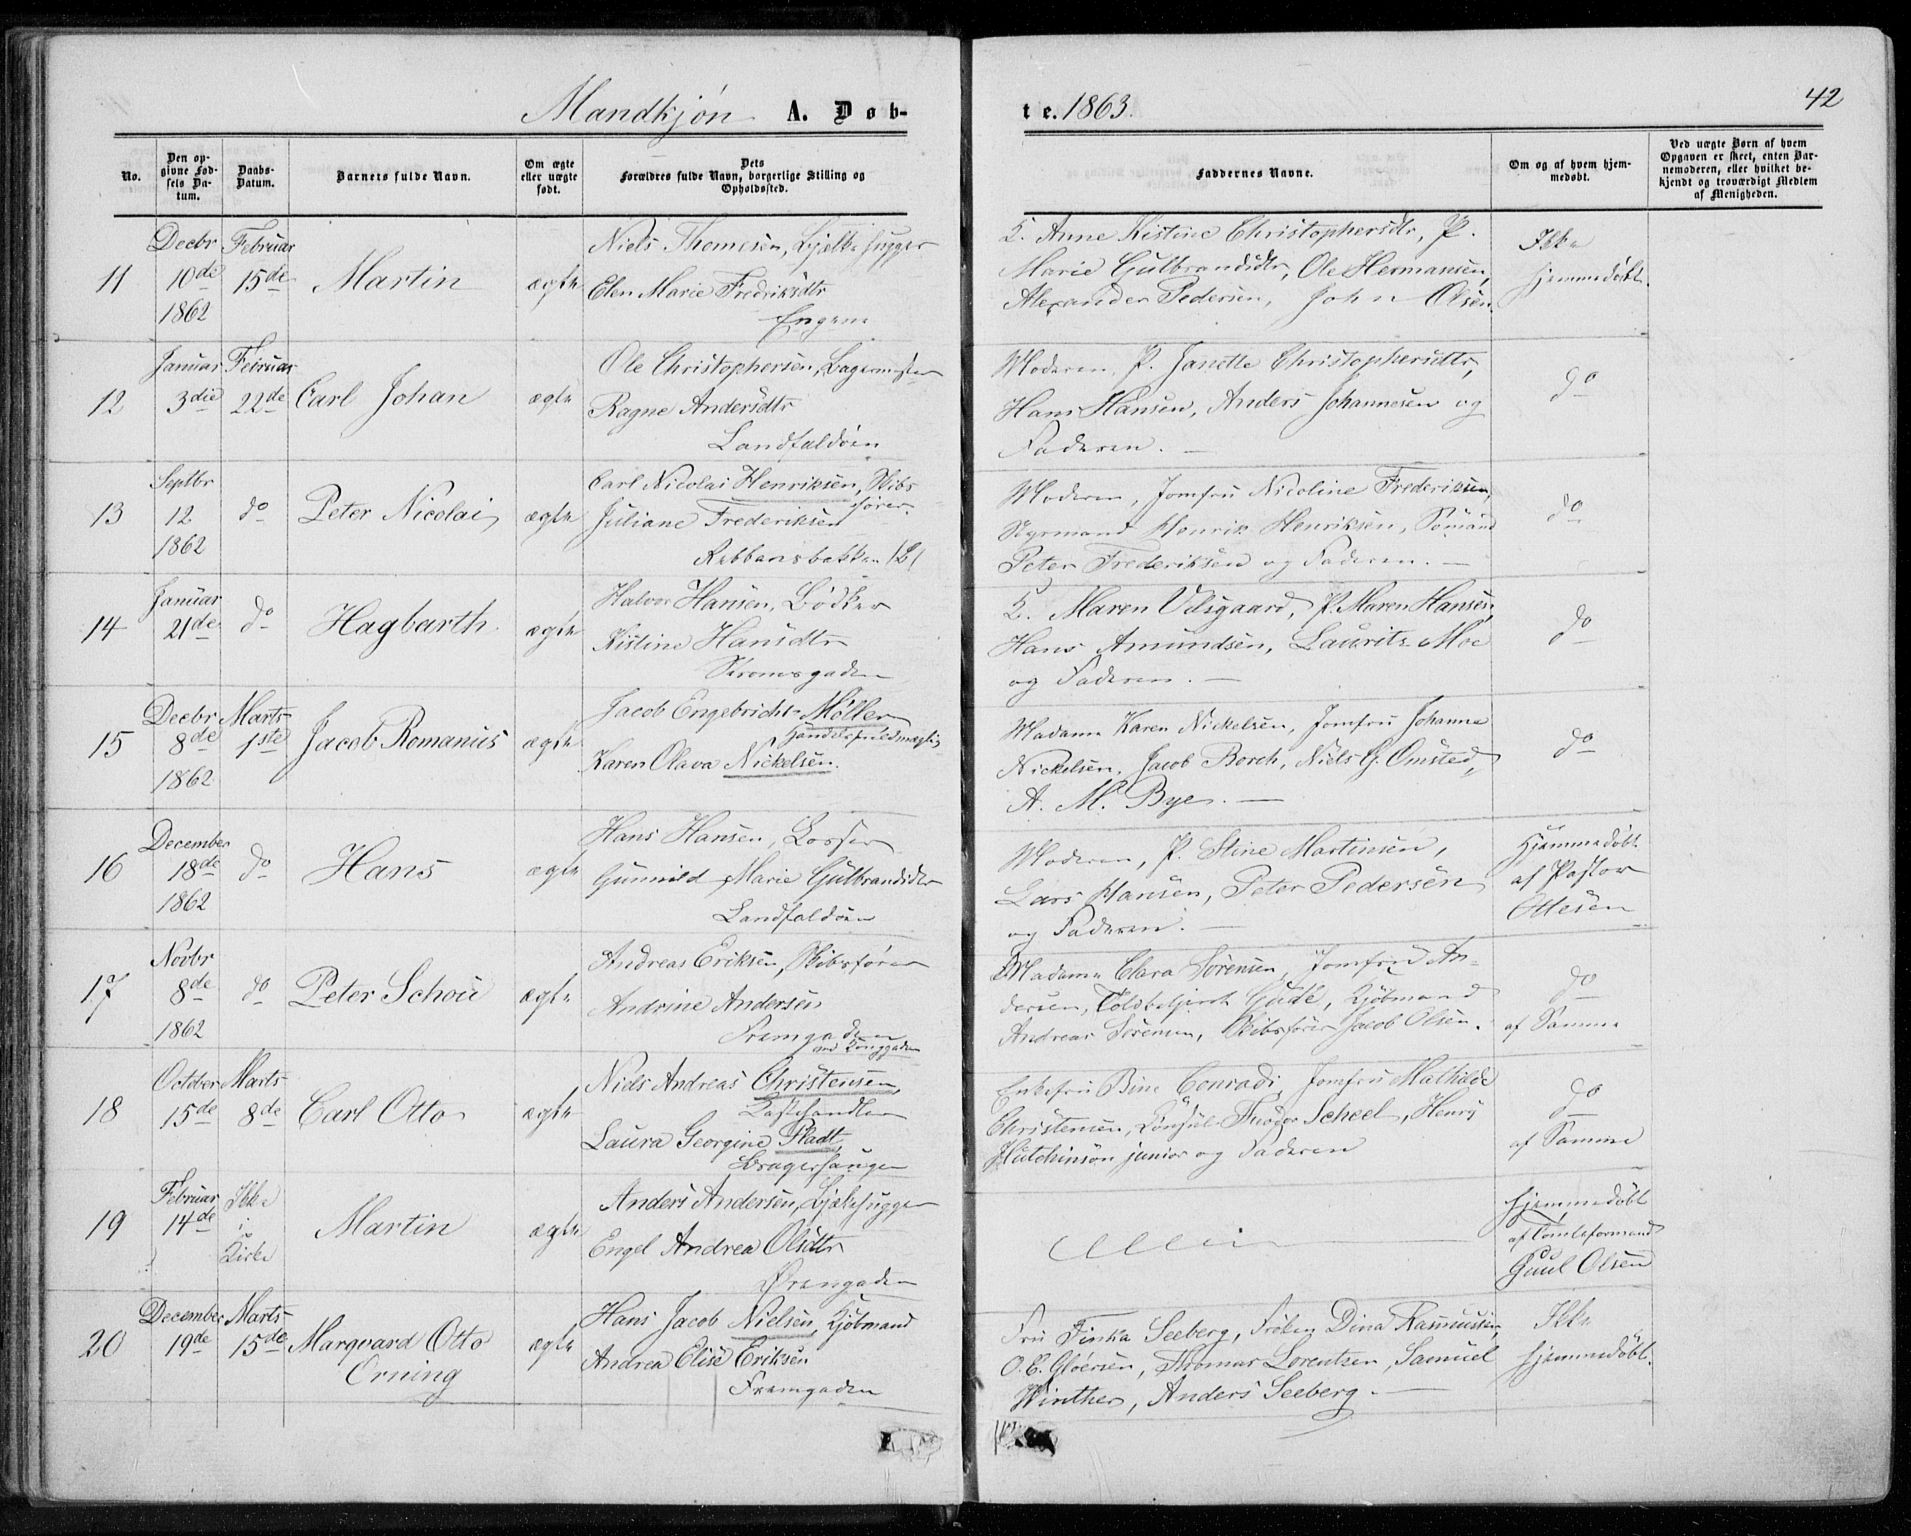 Mandkjøn A. Døb-
te. 1863.
42
No.
Den op-
givne Fød-
sels Da-
tum.
Daabs-
Datum.
Barnets fulde Navn.
Om ægte
eller uægte
født.
Dets
Forældres fulde Navn, borgerlige Stilling og
Opholdssted.
Faddernes Navne.
Om og af hvem hjem-
medøbt.
Ved uægte Børn af hvem
Opgaven er skeet, enten Bar-
nemoderen, eller hvilket be-
kjendt og troværdigt Medlem
af Menigheden.
11
Decbr
10de
1862
Februar
15de
Martin
ægte
Niels Thomesen, Bjelkehugger
Elen Marie Fredriksdtr
Engene
K. Anne Kistine Christophersdtr, P.
Marie Gulbrandsdtr, Ole Hermansen,
Alexander Pedersen, John Olsen.
Ikke
hjemmedøbt.
12
Januar
3die
Februar
22de
Carl Johan
ægte
Ole Christophersen, Bagermester
Ragne Andersdtr
Landfaldøen
Moderen, P. Janette Christophersdtr,
Hans Hansen, Anders Johannesen og
Faderen. —
do
13
Septbr
12
1862
do
Peter Nicolai
ægte
Carl Nicolai Henriksen, Skibs
fører.
Juliane Frederiksen
Rebbansbakken
Moderen, Jomfru Nicoline Frederiksen,
Styrmand Henrik Henriksen, Sømand
Peter Frederiksen og Faderen. —
do
14
Januar
21de
do
Hagbarth
ægte
Halvor Hansen, Bødker
Kistine Hansdtr
Strømsgaden
K. Maren Velsgaard, P. Maren Hansen,
Hans Amundsen, Lauritz Moe
og Faderen. —
do
15
Decbr
8de
1862
Marts
1ste
Jacob Romanus
ægte
Jacob Engebricht Møller
Handelsfuldmægtig
Karen Olava Nickelsen.
Madame Karen Nickelsen, Jomfru Johanne
Nickelsen, Jacob Borch, Niels G. Omsted,
A. M. Bye. —
do
16
December
18de
1862
do
Hans
ægte
Hans Hansen, Losser
Gunnild Marie Gulbrandsdtr
Landfaldøen
Moderen, P. Stine Martinsen,
Lars Hansen, Peter Pedersen
og Faderen. —
Hjemmedøbt
af Pastor
Ottesen
17
Novbr
8de
1862
do
Peter Schou
ægte
Andreas Eriksen, Skibsfører
Andrine Andersen
Fremgaden
ved Kongegaden
Madame Clara Sørensen, Jomfru An-
dersen, Toldbetjent Gude, Kjøbmand
Andreas Sørensen, Skibsfører Jacob Olsen.
do
af Samme
18
October
15de
Marts
8de
Carl Otto
ægte
Niels Andreas Christensen,
Lasthandler
Laura Georgine Pladt,
Bragerhaugen
Enkefru Bine Conradi, Jomfru Mathilde
Christensen, Consul Theodor Scheel, Henry
Hutchinson junior og Faderen
do
af Samme
19
Februar
14de
Ikke
i
Kirke
Martin
ægte
Anders Andersen, Bjelkehugger
Engel Andrea Olsdtr
Ørengaden
Hjemmedøbt
af Tomteformand
Guul Olsen
20
December
19de
Marts
15de
Marqvard Otto
Orning
ægte
Hans Jacob Nielsen, Kjøbmand
Andrea Elise Eriksen
Fremgaden
Fru Finka Seeberg, Frøken Dina Rasmussen,
O. C. Gløersen, Thomas Lorentzen, Samuel
Winther, Anders Seeberg. —
Ikke
hjemmedøbt.